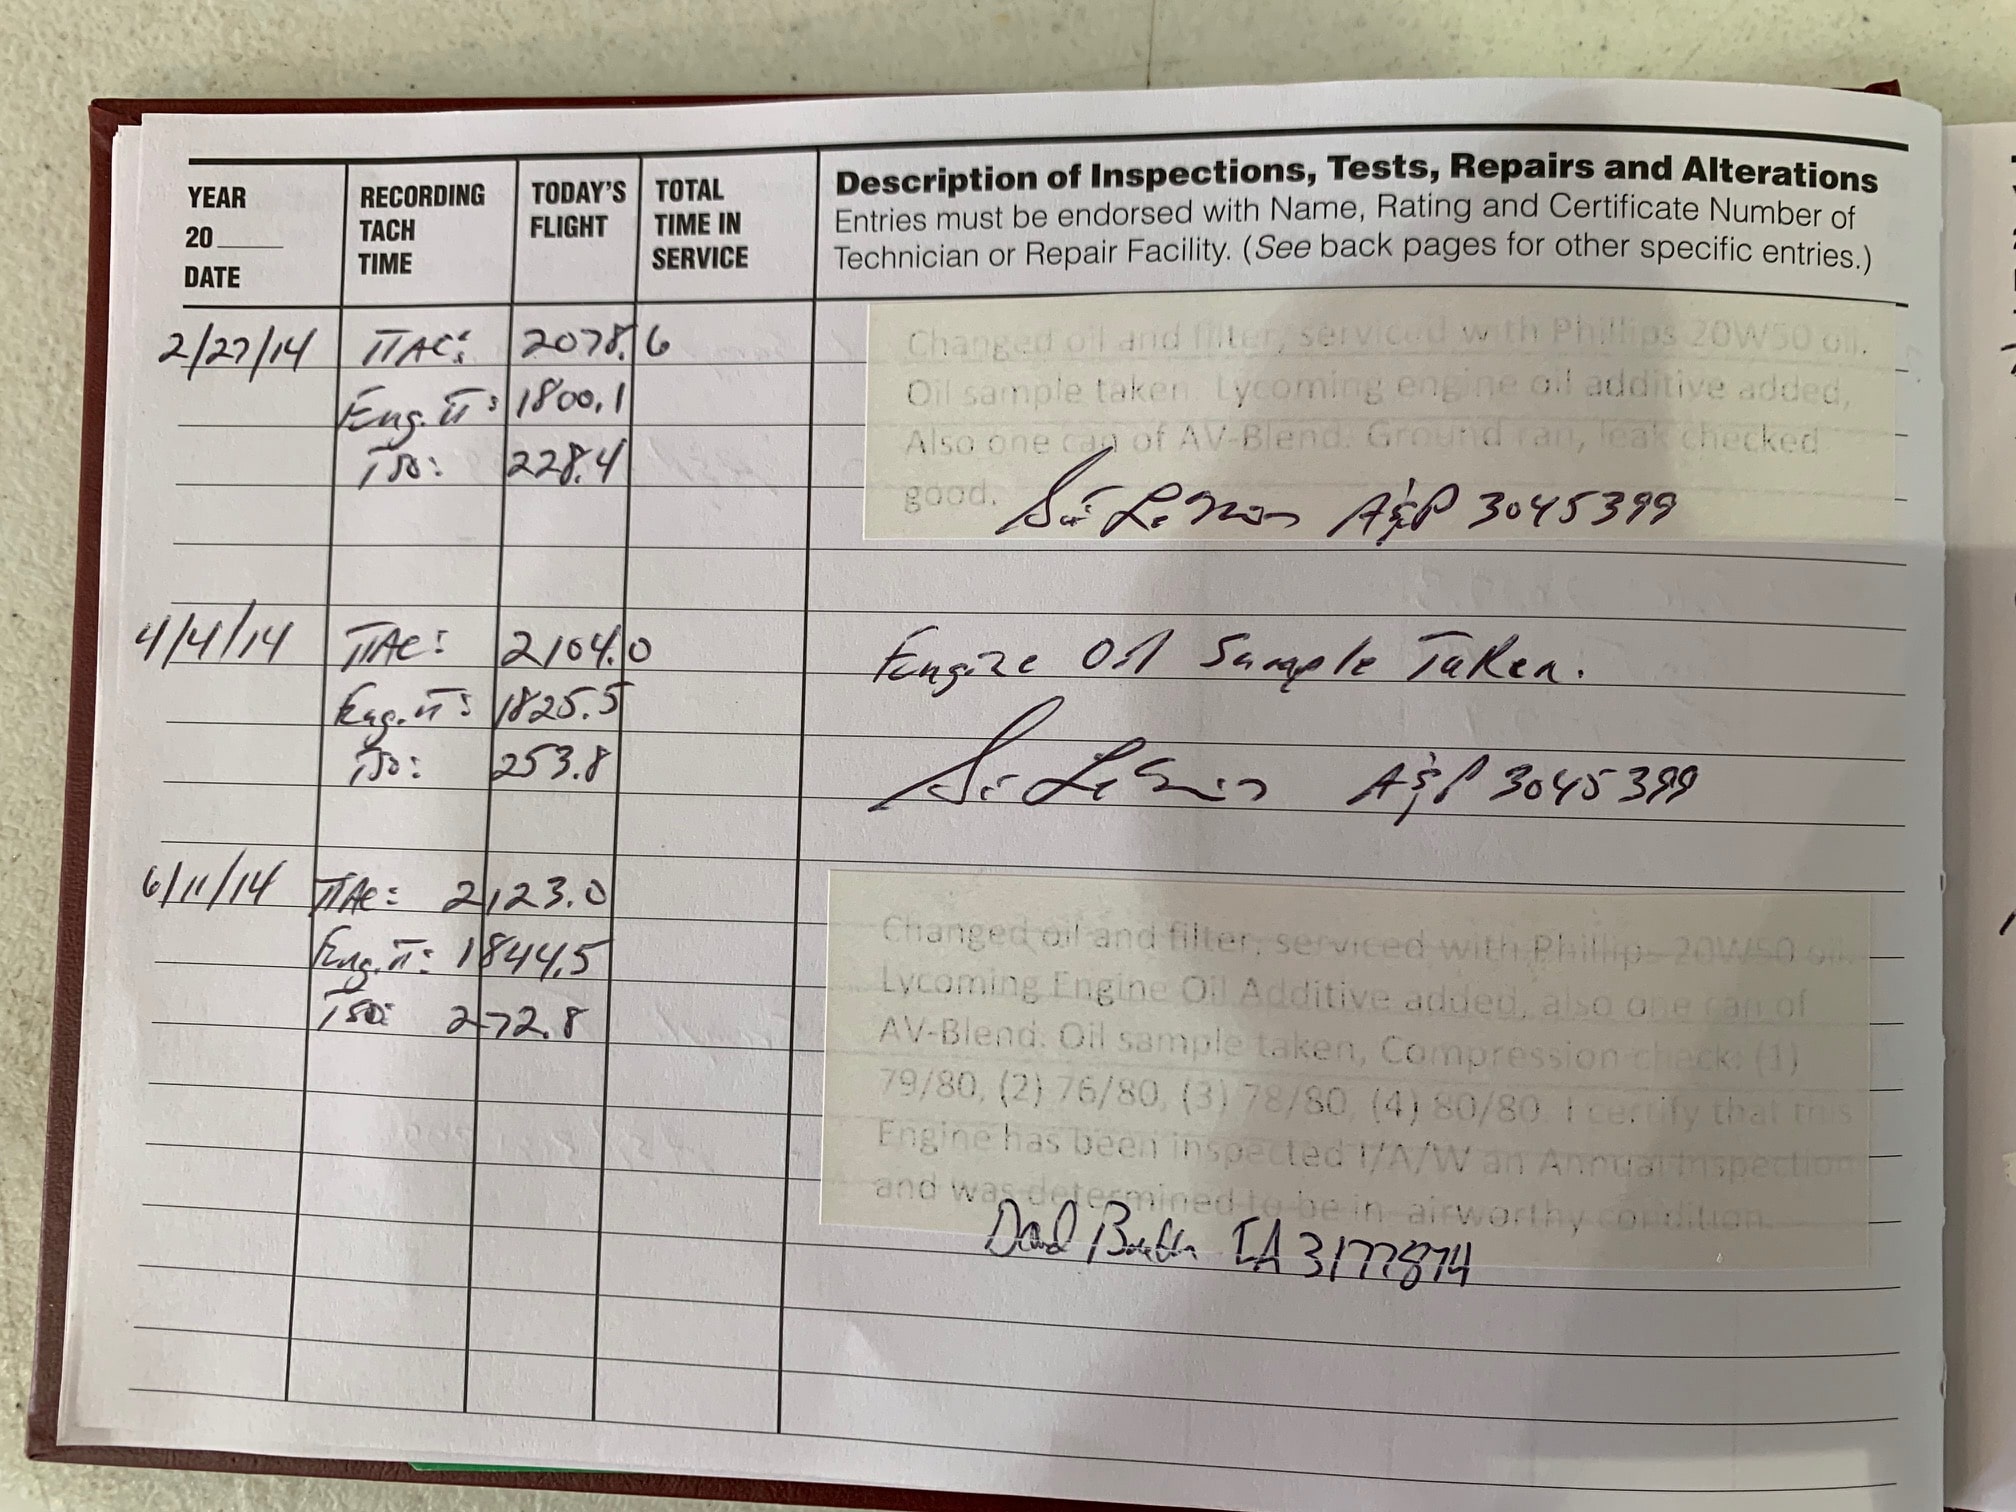 YEAR
20____
DATE
RECORDING
TACH
TIME
TODAY'S
FLIGHT
TOTAL
TIME IN
SERVICE
Description of Inspections, Tests, Repairs and Alterations
Entries must be endorsed with Name, Rating and Certificate Number of
Technician or Repair Facility. (See back pages for other specific entries.)
2/27/14 TTAC: 2078.6
Eng. TT: 1800.1
TSO: 228.4
Changed oil and filter, serviced with Phillips 20W50 oil.
Oil sample taken. Lycoming engine oil additive added,
Also one can of AV-Blend. Ground ran, leak checked
good.
A&P 3045399
4/4/14 TTAC: 2104.0
Eng. TT: 1825.5
TSO: 253.8
Engine Oil Sample Taken.
A&P 3045399
6/11/14 TTAC: 2123.0
Eng. TT: 1844.5
TSO: 272.8
Changed oil and filter, serviced with Phillips 20W50 oil.
Lycoming Engine Oil Additive added, also one can of
AV-Blend. Oil sample taken, Compression check: (1)
79/80, (2) 76/80, (3) 78/80, (4) 80/80. I certify that this
Engine has been inspected I/A/W an Annual Inspection
and was determined to be in airworthy condition.
IA 3177874